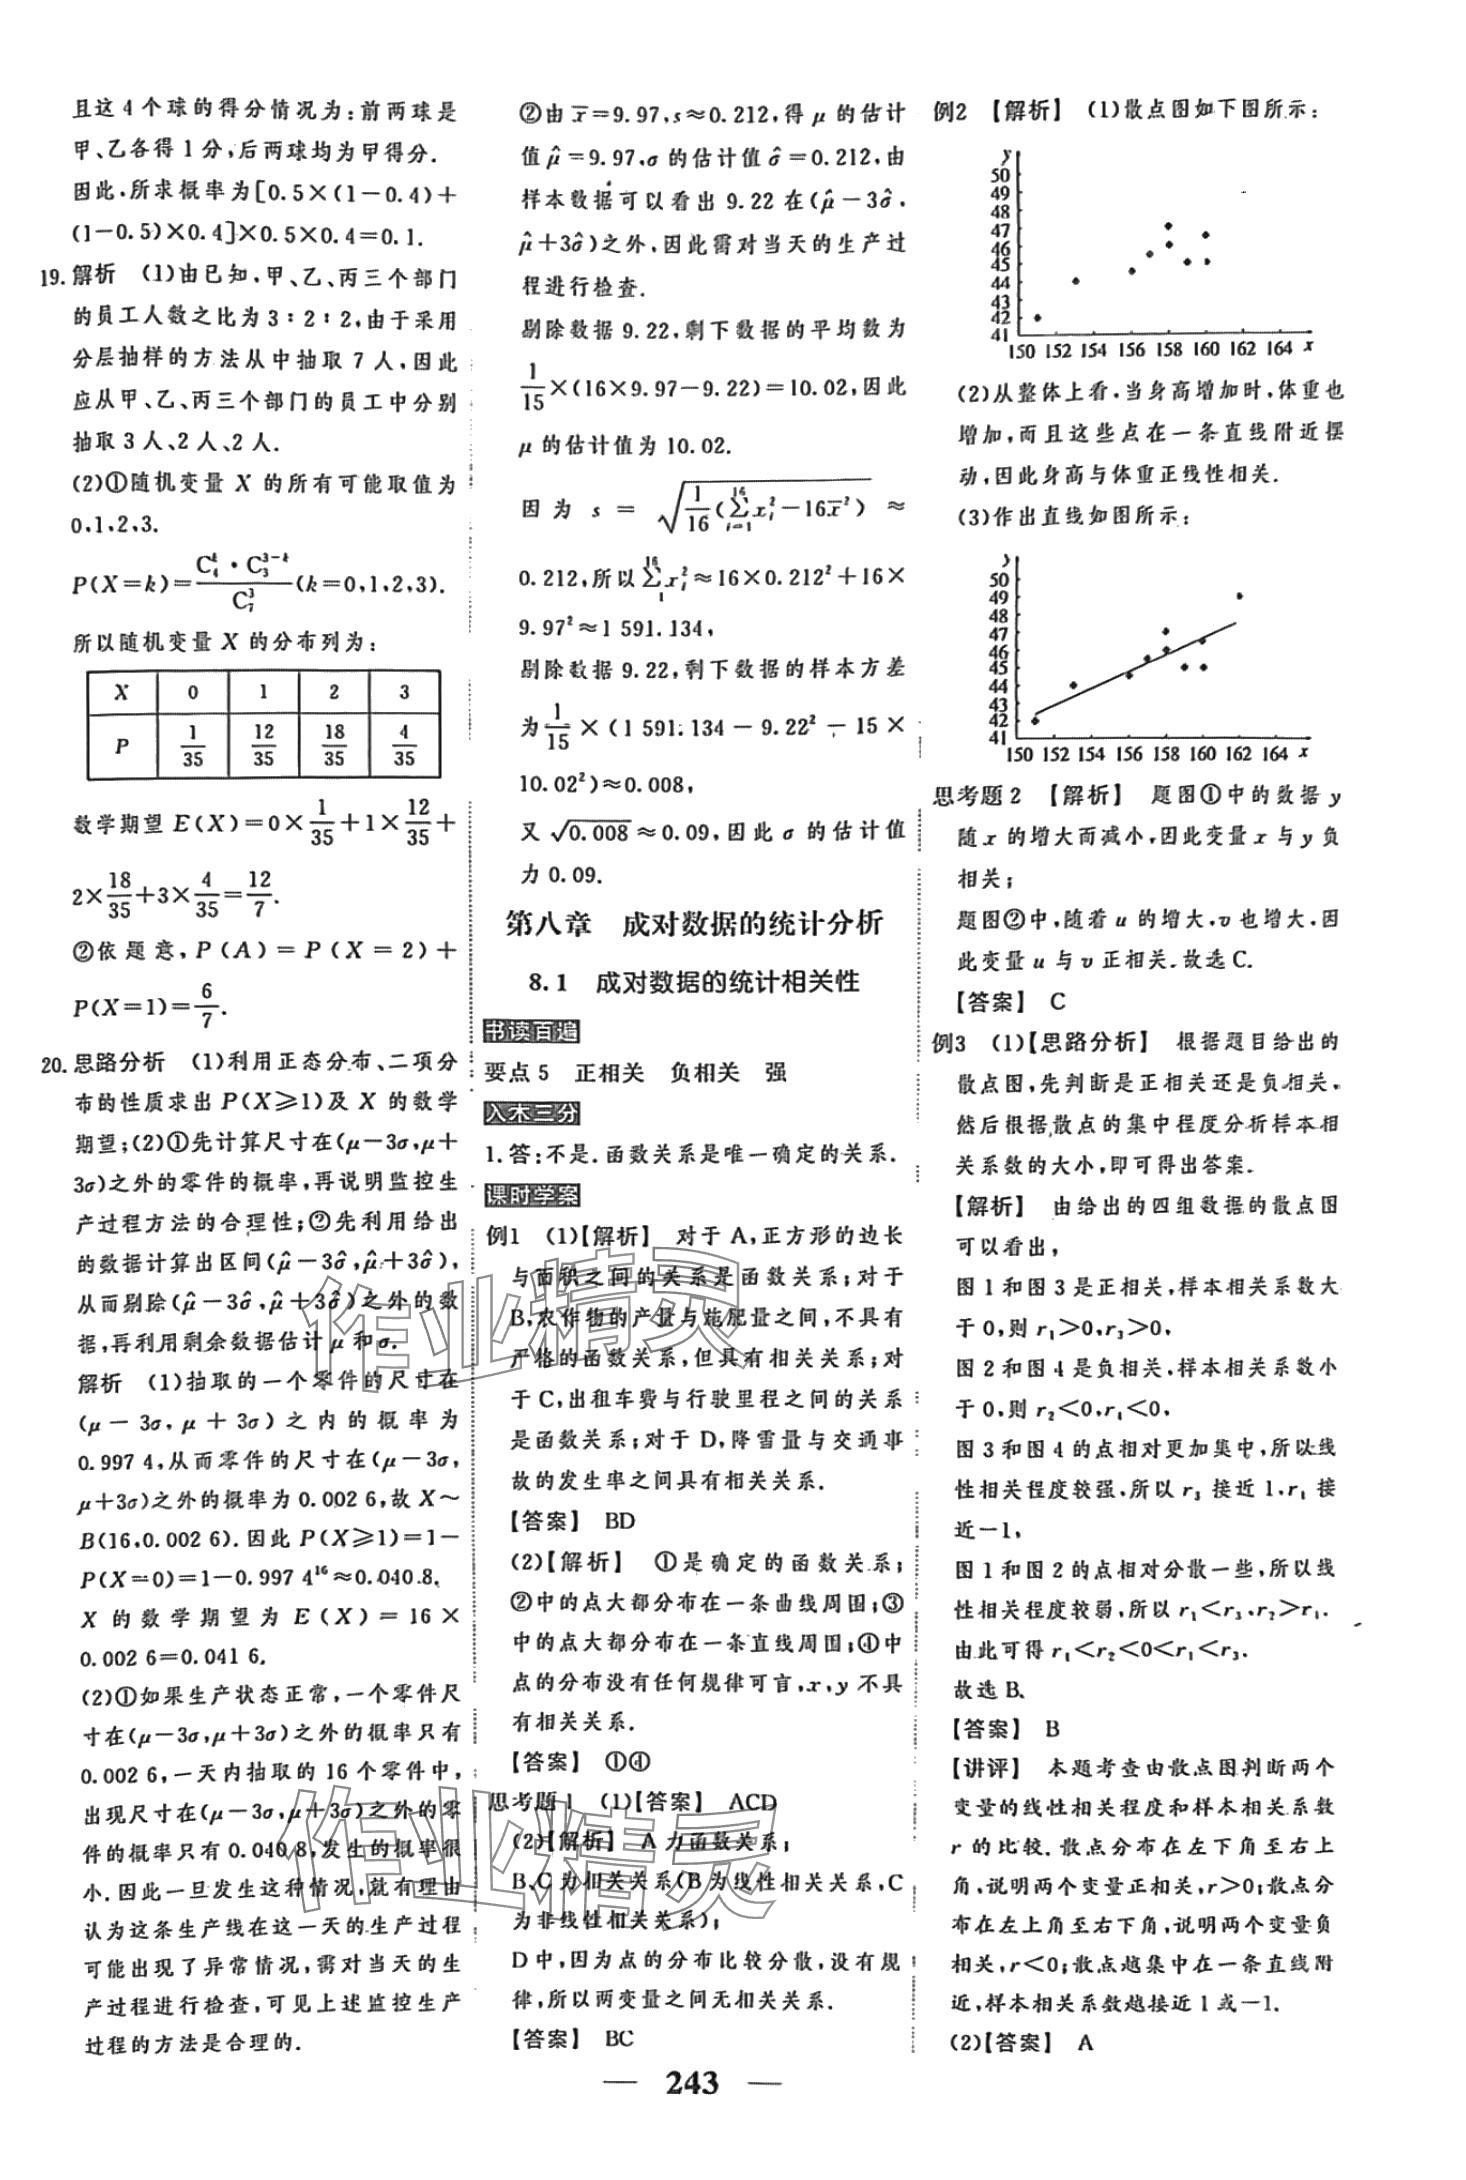 且这 4 个球的得分情况为:前两球是
甲、乙各得 1 分,后两球均为甲得分.
因此,所求概率为[0.5×(1-0.4)+
(1-0.5)×0.4]×0.5×0.4=0.1.
19. 解析 (1)由已知,甲、乙、丙三个部门
的员工人数之比为 3∶2∶2,由于采用
分层抽样的方法从中抽取 7 人,因此
应从甲、乙、丙三个部门的员工中分别
抽取 3 人、2 人、2 人.
(2)①随机变量 X 的所有可能取值为
0,1,2,3.
P(X=k)=C₄ᵏ·C₃³⁻ᵏ/C₇³(k=0,1,2,3).
所以随机变量 X 的分布列为:
X 0 1 2 3
P 1/35 12/35 18/35 4/35
数学期望 E(X)=0×1/35+1×12/35+
2×18/35+3×4/35=12/7.
②依题意,P(A)=P(X=2)+
P(X=1)=6/7.
20. 思路分析 (1)利用正态分布、二项分
布的性质求出 P(X≥1)及 X 的数学
期望;(2)①先计算尺寸在(μ-3σ,μ+
3σ)之外的零件的概率,再说明监控生
产过程方法的合理性;②先利用给出
的数据计算出区间(μ̂-3σ̂,μ̂+3σ̂),
从而剔除(μ̂-3σ̂,μ̂+3σ̂)之外的数
据,再利用剩余数据估计 μ 和σ.
解析 (1)抽取的一个零件的尺寸在
(μ-3σ,μ+3σ)之内的概率为
0.997 4,从而零件的尺寸在(μ-3σ,
μ+3σ)之外的概率为 0.002 6,故 X~
B(16,0.002 6).因此 P(X≥1)=1-
P(X=0)=1-0.997 4¹⁶≈0.040 8,
X 的数学期望为 E(X)=16×
0.002 6=0.041 6.
(2)①如果生产状态正常,一个零件尺
寸在(μ-3σ,μ+3σ)之外的概率只有
0.002 6,一天内抽取的 16 个零件中,
出现尺寸在(μ-3σ,μ+3σ)之外的零
件的概率只有 0.040 8,发生的概率很
小.因此一旦发生这种情况,就有理由
认为这条生产线在这一天的生产过程
可能出现了异常情况,需对当天的生
产过程进行检查,可见上述监控生产
过程的方法是合理的.
②由 x̄=9.97,s≈0.212,得 μ 的估计
值 μ̂=9.97,σ 的估计值 σ̂=0.212,由
样本数据可以看出 9.22 在(μ̂-3σ̂,
μ̂+3σ̂)之外,因此需对当天的生产过
程进行检查.
剔除数据 9.22,剩下数据的平均数为
1/15×(16×9.97-9.22)=10.02,因此
μ 的估计值为 10.02.
因为 s=√(1/16(∑ᵢ₌₁¹⁶xᵢ²-16x̄²))≈
0.212,所以∑₁¹⁶xᵢ²≈16×0.212²+16×
9.97²≈1 591.134,
剔除数据 9.22,剩下数据的样本方差
为1/15×(1 591.134-9.22²-15×
10.02²)≈0.008,
又√0.008≈0.09,因此 σ 的估计值
力 0.09.
第八章 成对数据的统计分析
8.1 成对数据的统计相关性
书读百遍
要点 5 正相关 负相关 强
入木三分
1.答:不是.函数关系是唯一确定的关系.
课时学案
例1 (1)【解析】 对于 A,正方形的边长
与面积之间的关系是函数关系;对于
B,农作物的产量与施肥量之间,不具有
严格的函数关系,但具有相关关系;对
于 C,出租车费与行驶里程之间的关系
是函数关系;对于 D,降雪量与交通事
故的发生率之间具有相关关系.
【答案】 BD
(2)【解析】 ①是确定的函数关系;
②中的点大都分布在一条曲线周围;③
中的点大都分布在一条直线周围;④中
点的分布没有任何规律可言,x,y 不具
有相关关系.
【答案】 ①④
思考题 1 (1)【答案】 ACD
(2)【解析】 A 力函数关系;
B、C 为相关关系(B 为线性相关关系,C
为非线性相关关系);
D 中,因为点的分布比较分散,没有规
律,所以两变量之间无相关关系.
【答案】 BC
例2 【解析】 (1)散点图如下图所示:
y
50
49
48
47
46
45
44
43
42
41
150 152 154 156 158 160 162 164 x
(2)从整体上看,当身高增加时,体重也
增加,而且这些点在一条直线附近摆
动,因此身高与体重正线性相关.
(3)作出直线如图所示:
y
50
49
48
47
46
45
44
43
42
41
150 152 154 156 158 160 162 164 x
思考题 2 【解析】 题图①中的数据 y
随 x 的增大而减小,因此变量 x 与 y 负
相关;
题图②中,随着 u 的增大,v 也增大,因
此变量 u 与 v 正相关.故选 C.
【答案】 C
例3 (1)【思路分析】 根据题目给出的
散点图,先判断是正相关还是负相关,
然后根据散点的集中程度分析样本相
关系数的大小,即可得出答案.
【解析】 由给出的四组数据的散点图
可以看出,
图 1 和图 3 是正相关,样本相关系数大
于 0,则 r₁>0,r₃>0,
图 2 和图 4 是负相关,样本相关系数小
于 0,则 r₂<0,r₄<0,
图 3 和图 4 的点相对更加集中,所以线
性相关程度较强,所以 r₃ 接近 1,r₄ 接
近-1,
图 1 和图 2 的点相对分散一些,所以线
性相关程度较弱,所以 r₁<r₃,r₂>r₄.
由此可得 r₄<r₂<0<r₁<r₃.
故选 B.
【答案】 B
【讲评】 本题考查由散点图判断两个
变量的线性相关程度和样本相关系数
r 的比较.散点分布在左下角至右上
角,说明两个变量正相关,r>0;散点分
布在左上角至右下角,说明两个变量负
相关,r<0;散点越集中在一条直线附
近,样本相关系数越接近 1 或-1.
(2)【答案】 A
作业精灵
作业精灵
— 243 —